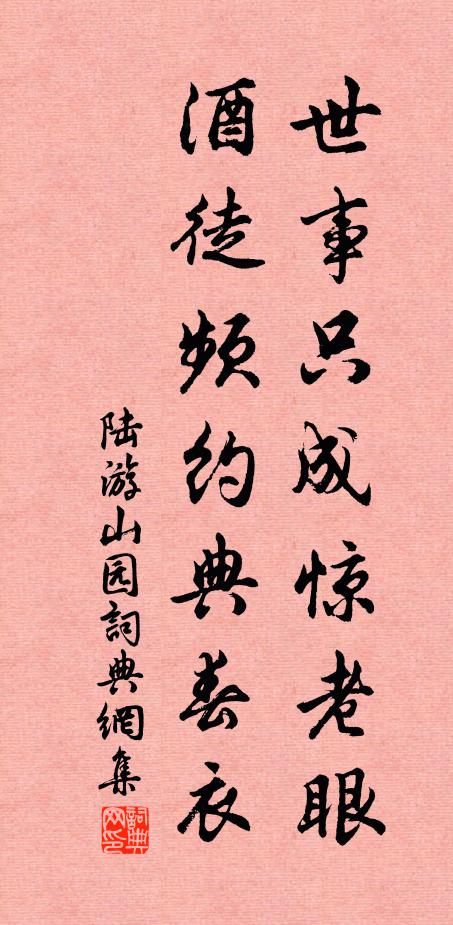 世事只成惊老眼
酒徒频约典春衣
陆游山园詞典網集
詞典
网印